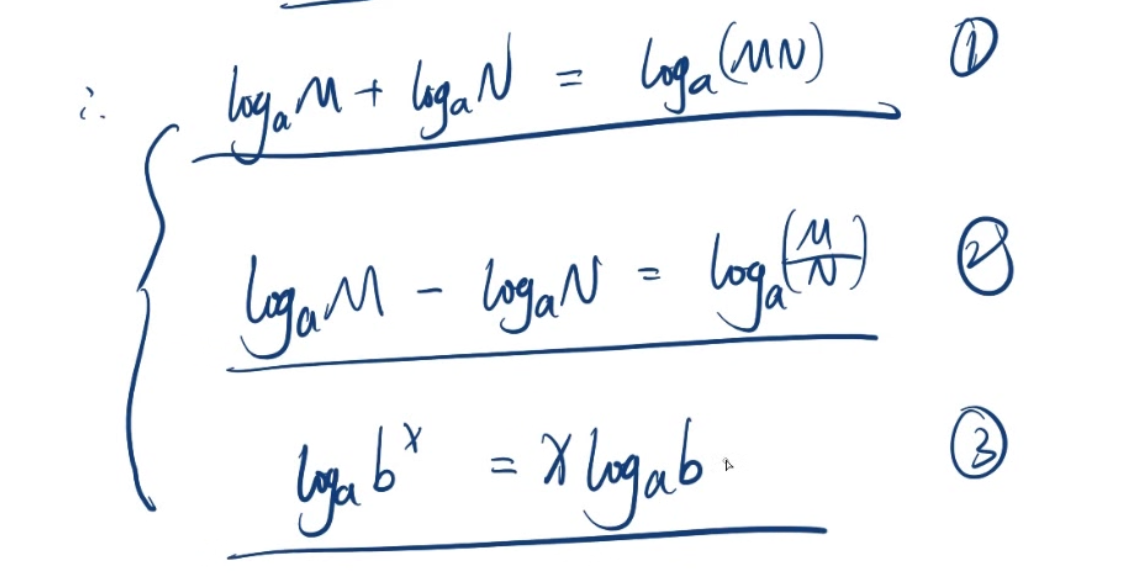 ∴ logₐM + logₐN = logₐ(MN) ①
logₐM - logₐN = logₐ(M/N) ②
logₐbˣ = xlogₐb. ③